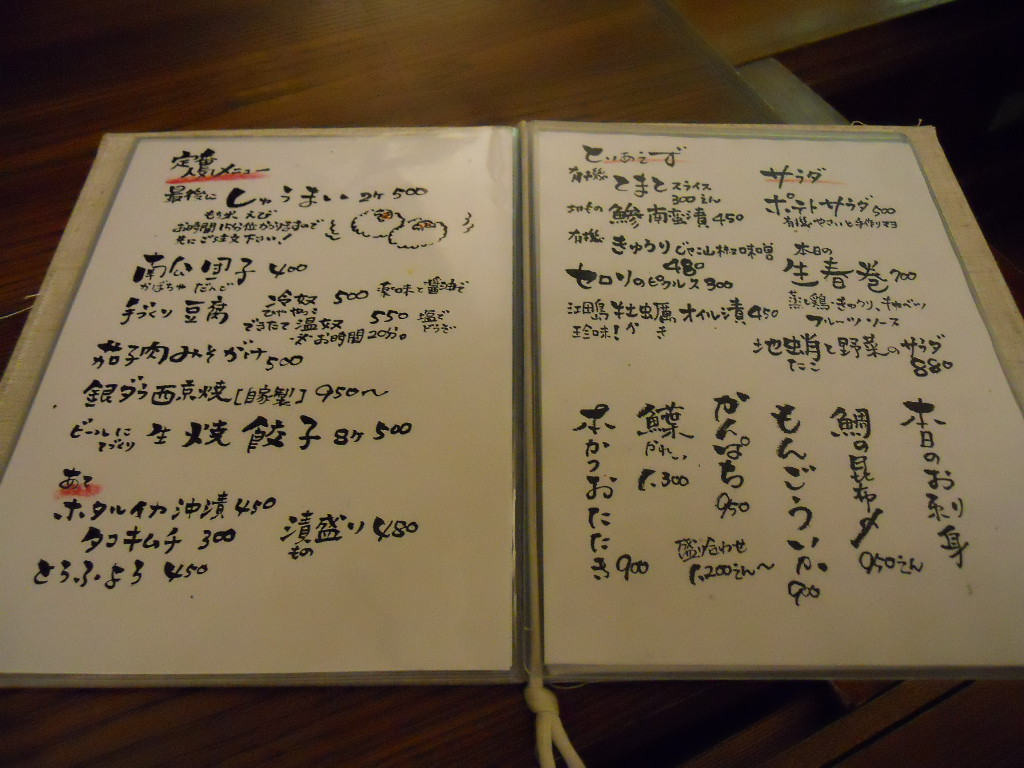 定番
人気メニュー
最後に しゅうまい 2ケ 500
もち米 えび
お時間15分位かかりますので
先にご注文下さい!
南瓜団子 400
かぼちゃ だんご
手づくり豆腐 冷奴 500 薬味と醤油で
ひややっこ
できたて温奴 550 塩で どうぞ
お時間20分。
茄子肉みそがけ 500
銀ダラ西京焼[自家製] 950〜
ビールに 手づくり 生焼餃子 8ケ 500
あて
ホタルイカ沖漬 450
タコキムチ 300
漬盛り 480
もの
とうふよう 450
とりあえず
有機 とまとスライス
300えん
地もの 鯵南蛮漬 450
有機 きゅうり じゃこ山椒味噌
480
セロリのピクルス 300
江田島牡蠣オイル漬 450
珍味! かき
サラダ
ポテトサラダ 500
有機やさいと手作りマヨ
本日の
生春巻 700
蒸し鶏・きゅうり、キャベツ
フルーツソース
地蛸と野菜のサラダ
たこ 880
本日のお刺身
鯛の昆布〆 950えん
もんごういか 900
かんぱち 950
盛り合わせ
1,200えん〜
鰈 かれい 1,300
本かつおたたき 900